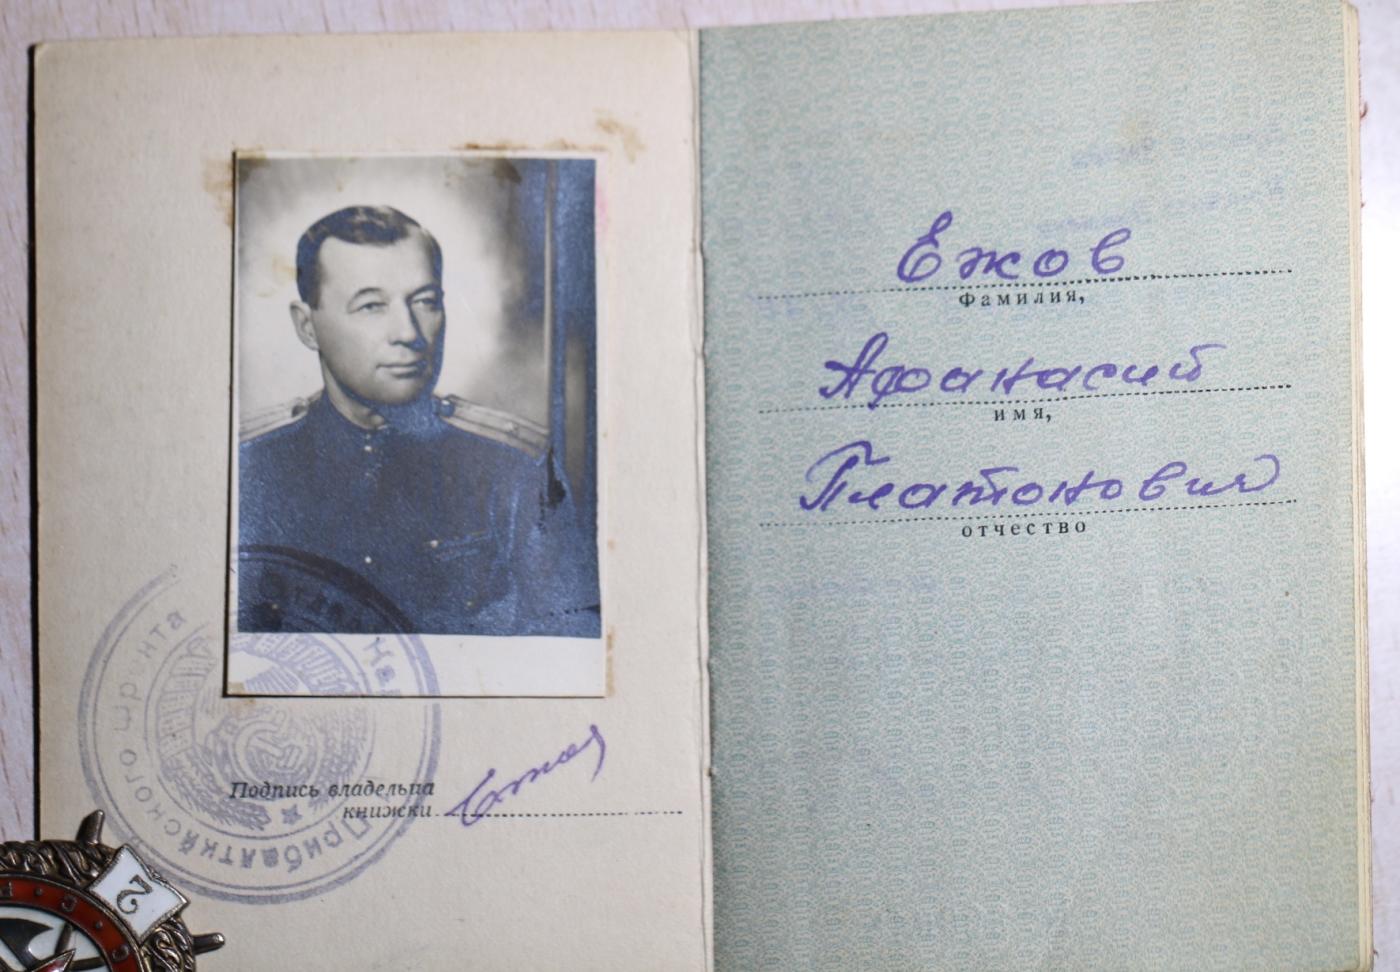 Подпись владельца
книжки
Ежов
Отдел
Прибалтийского фронта
2
Ежов
Фамилия,
Афанасий
имя,
Платонович
отчество